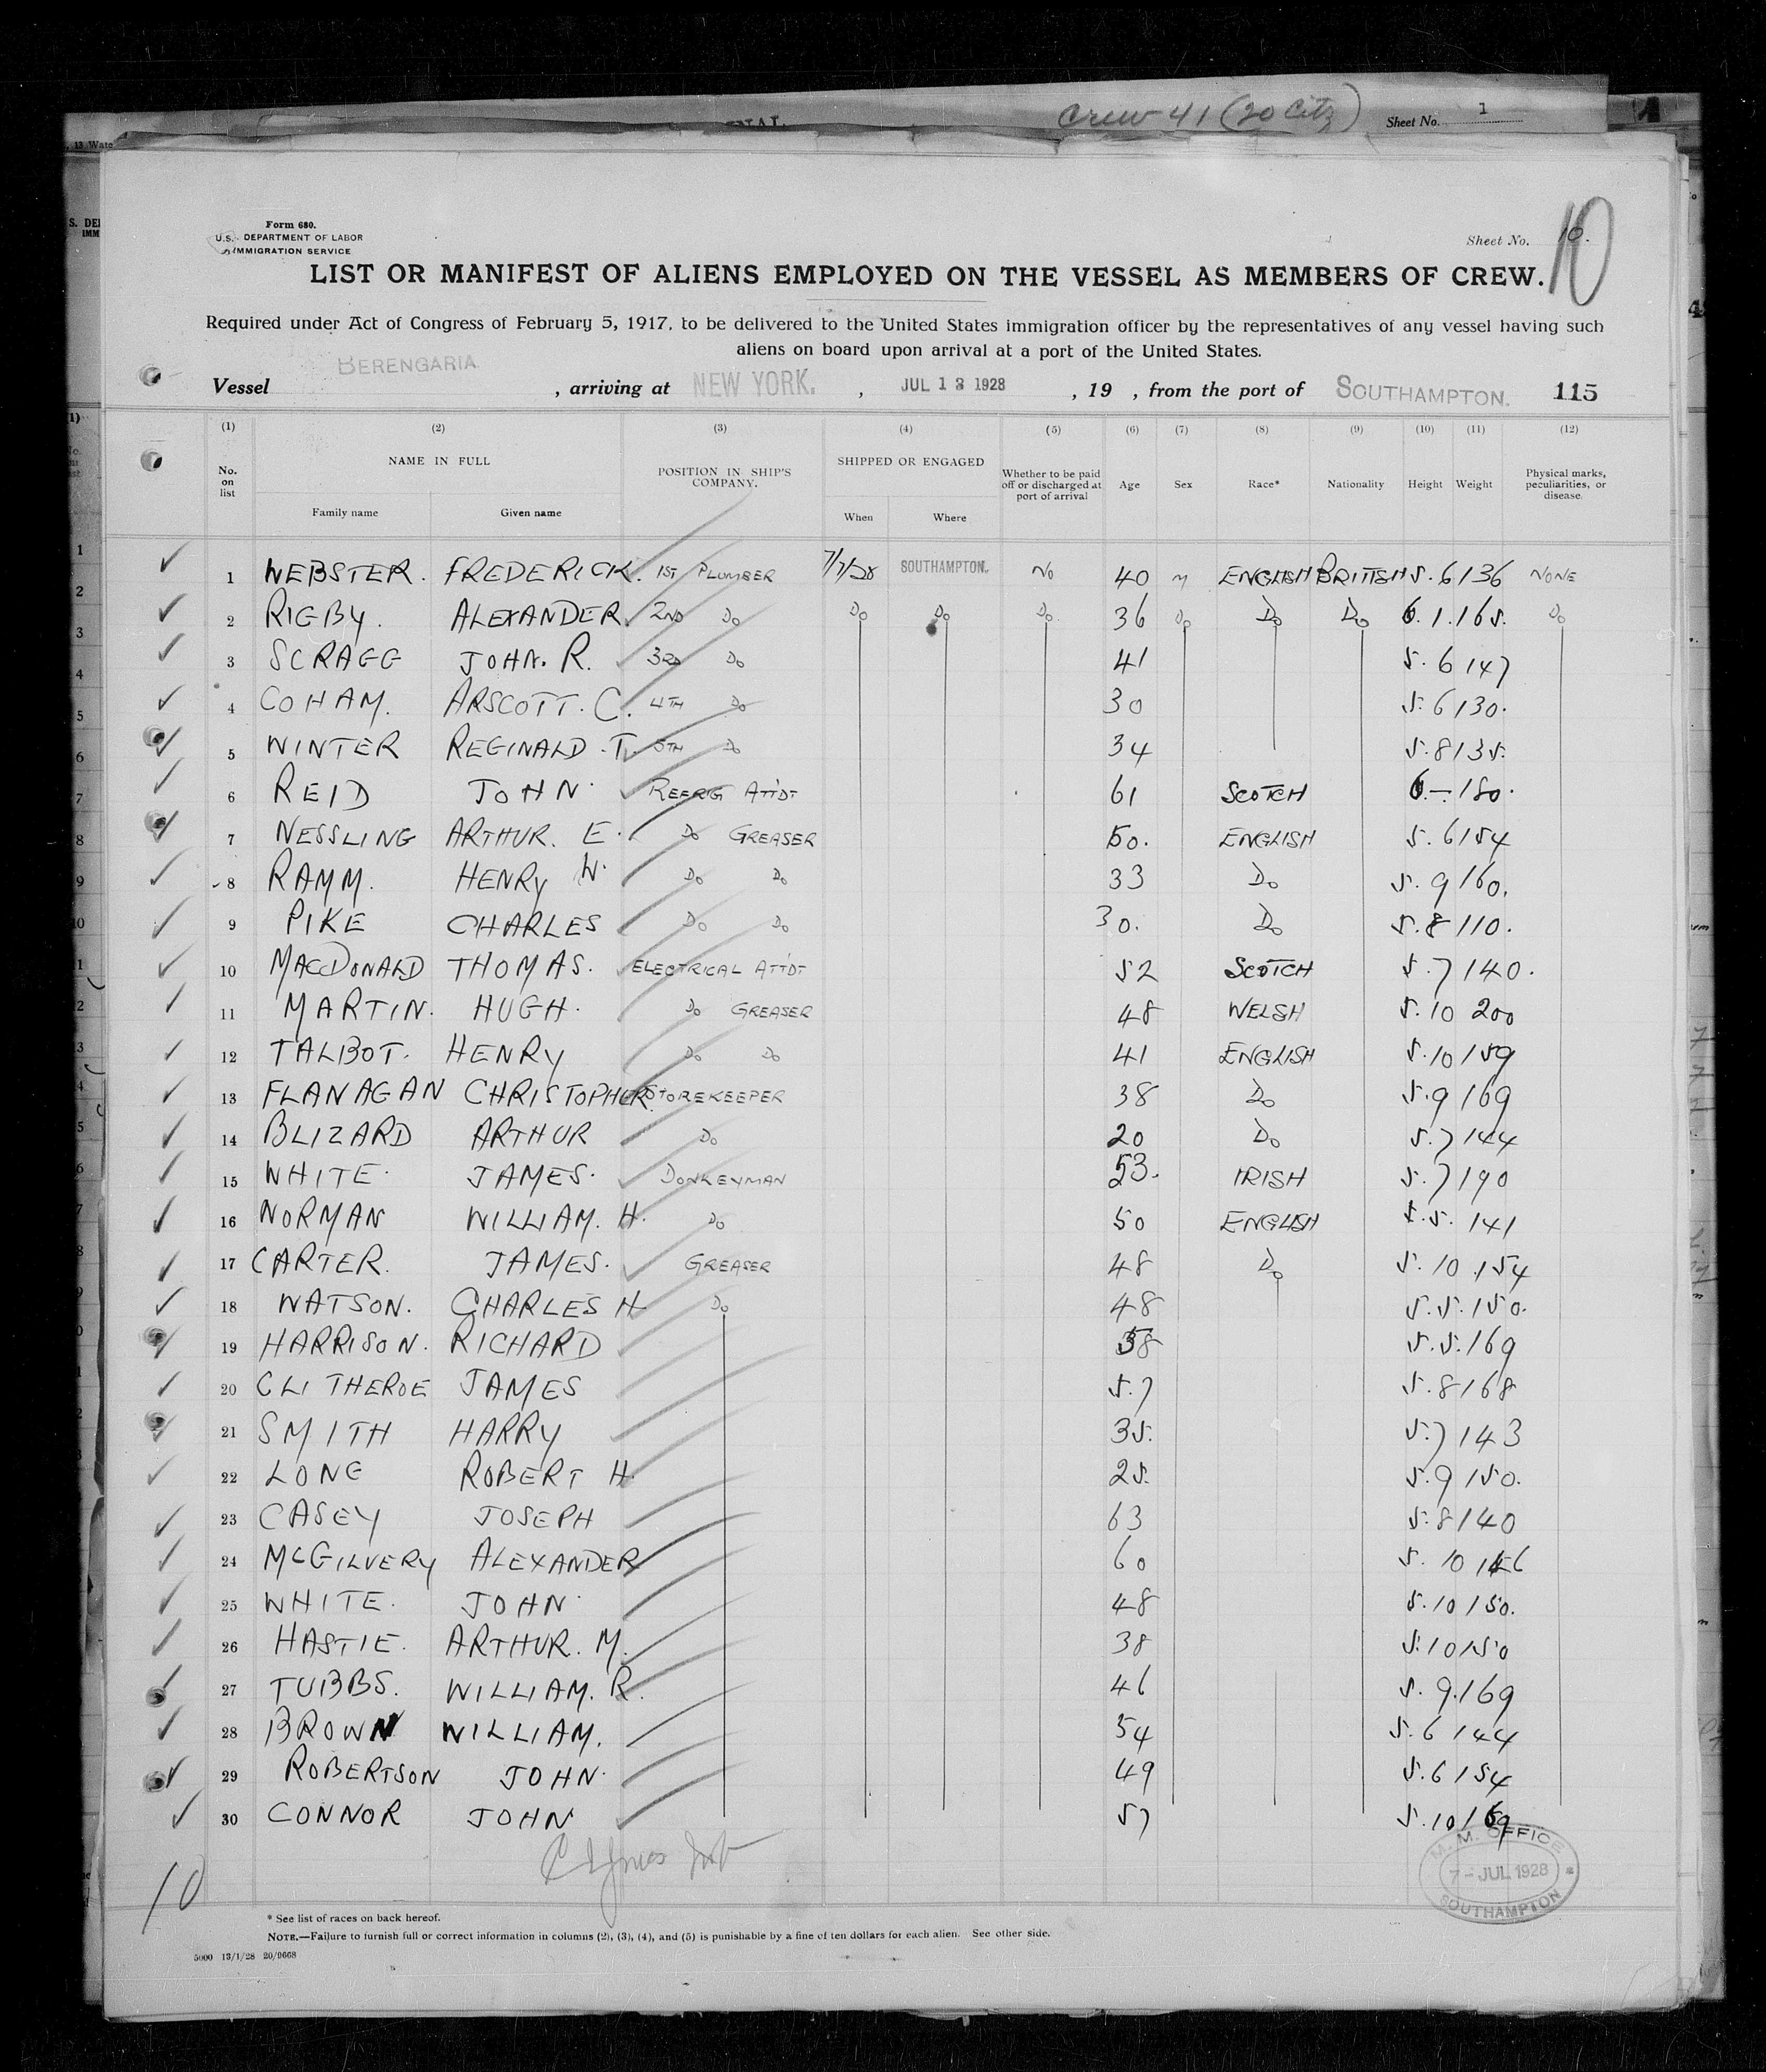 Crew 41 (20 Citz) Sheet No. 1
, 13 Wate
S. DE
IMM
Form 680.
U.S. DEPARTMENT OF LABOR
IMMIGRATION SERVICE
Sheet No. 10.
10
LIST OR MANIFEST OF ALIENS EMPLOYED ON THE VESSEL AS MEMBERS OF CREW.
Required under Act of Congress of February 5, 1917, to be delivered to the United States immigration officer by the representatives of any vessel having such
aliens on board upon arrival at a port of the United States.
Vessel BERENGARIA , arriving at NEW YORK. , JUL 13 1928 , 19 , from the port of SOUTHAMPTON. 115
(1) (2) (3) (4) (5) (6) (7) (8) (9) (10) (11) (12)
No. on list NAME IN FULL Family name Given name POSITION IN SHIP'S COMPANY. SHIPPED OR ENGAGED When Where Whether to be paid off or discharged at port of arrival Age Sex Race* Nationality Height Weight Physical marks, peculiarities, or disease.
1 WEBSTER. FREDERICK. 1ST PLUMBER 7/7/28 SOUTHAMPTON. NO 40 M ENGLISH BRITISH 5.6 136 NONE
2 RIGBY. ALEXANDER. 2ND DO DO DO DO 36 DO DO DO 6.1. 165. DO
3 SCRAGG JOHN. R. 3RD DO 41 5.6 147
4 COHAM. ARSCOTT. C. 4TH DO 30 5.6 130.
5 WINTER REGINALD. T. 5TH DO 34 5.8 135.
6 REID JOHN. REFRG ATTDT 61 SCOTCH 6.—. 180.
7 NESSLING ARTHUR. E. DO GREASER 50. ENGLISH 5.6 154
8 RAMM. HENRY W. DO DO 33 DO 5.9 160.
9 PIKE CHARLES DO DO 30. DO 5.8 110.
10 MACDONALD THOMAS. ELECTRICAL ATTDT 52 SCOTCH 5.7 140.
11 MARTIN. HUGH. DO GREASER 48 WELSH 5.10 200
12 TALBOT. HENRY DO DO 41 ENGLISH 5.10 159
13 FLANAGAN CHRISTOPHER. STOREKEEPER 38 DO 5.9 169
14 BLIZARD ARTHUR DO 20 DO 5.7 144
15 WHITE. JAMES. DONKEYMAN 53. IRISH 5.7 190
16 NORMAN WILLIAM. H. DO 50 ENGLISH 5.5. 141
17 CARTER. JAMES. GREASER 48 DO 5.10. 154
18 WATSON. CHARLES H DO 48 5.5. 150.
19 HARRISON. RICHARD 58 5.5. 169
20 CLITHEROE JAMES 57 5.8 168
21 SMITH HARRY 35. 5.7 143
22 LONG ROBERT H. 25. 5.9 150.
23 CASEY JOSEPH 63 5.8 140
24 MCGILVERY ALEXANDER 60 5.10
25 WHITE. JOHN. 48 5.10 150.
26 HASTIE. ARTHUR. M. 38 5.10 150
27 TUBBS. WILLIAM. R. 46 5.9. 169
28 BROWN WILLIAM. 54 5.6 144
29 ROBERTSON JOHN. 49 5.6 154
30 CONNOR JOHN 57 5.10 169
10
M. M. OFFICE
7 - JUL 1928
SOUTHAMPTON
* See list of races on back hereof.
NOTE.—Failure to furnish full or correct information in columns (2), (3), (4), and (5) is punishable by a fine of ten dollars for each alien. See other side.
5000 13/1/28 20/9668